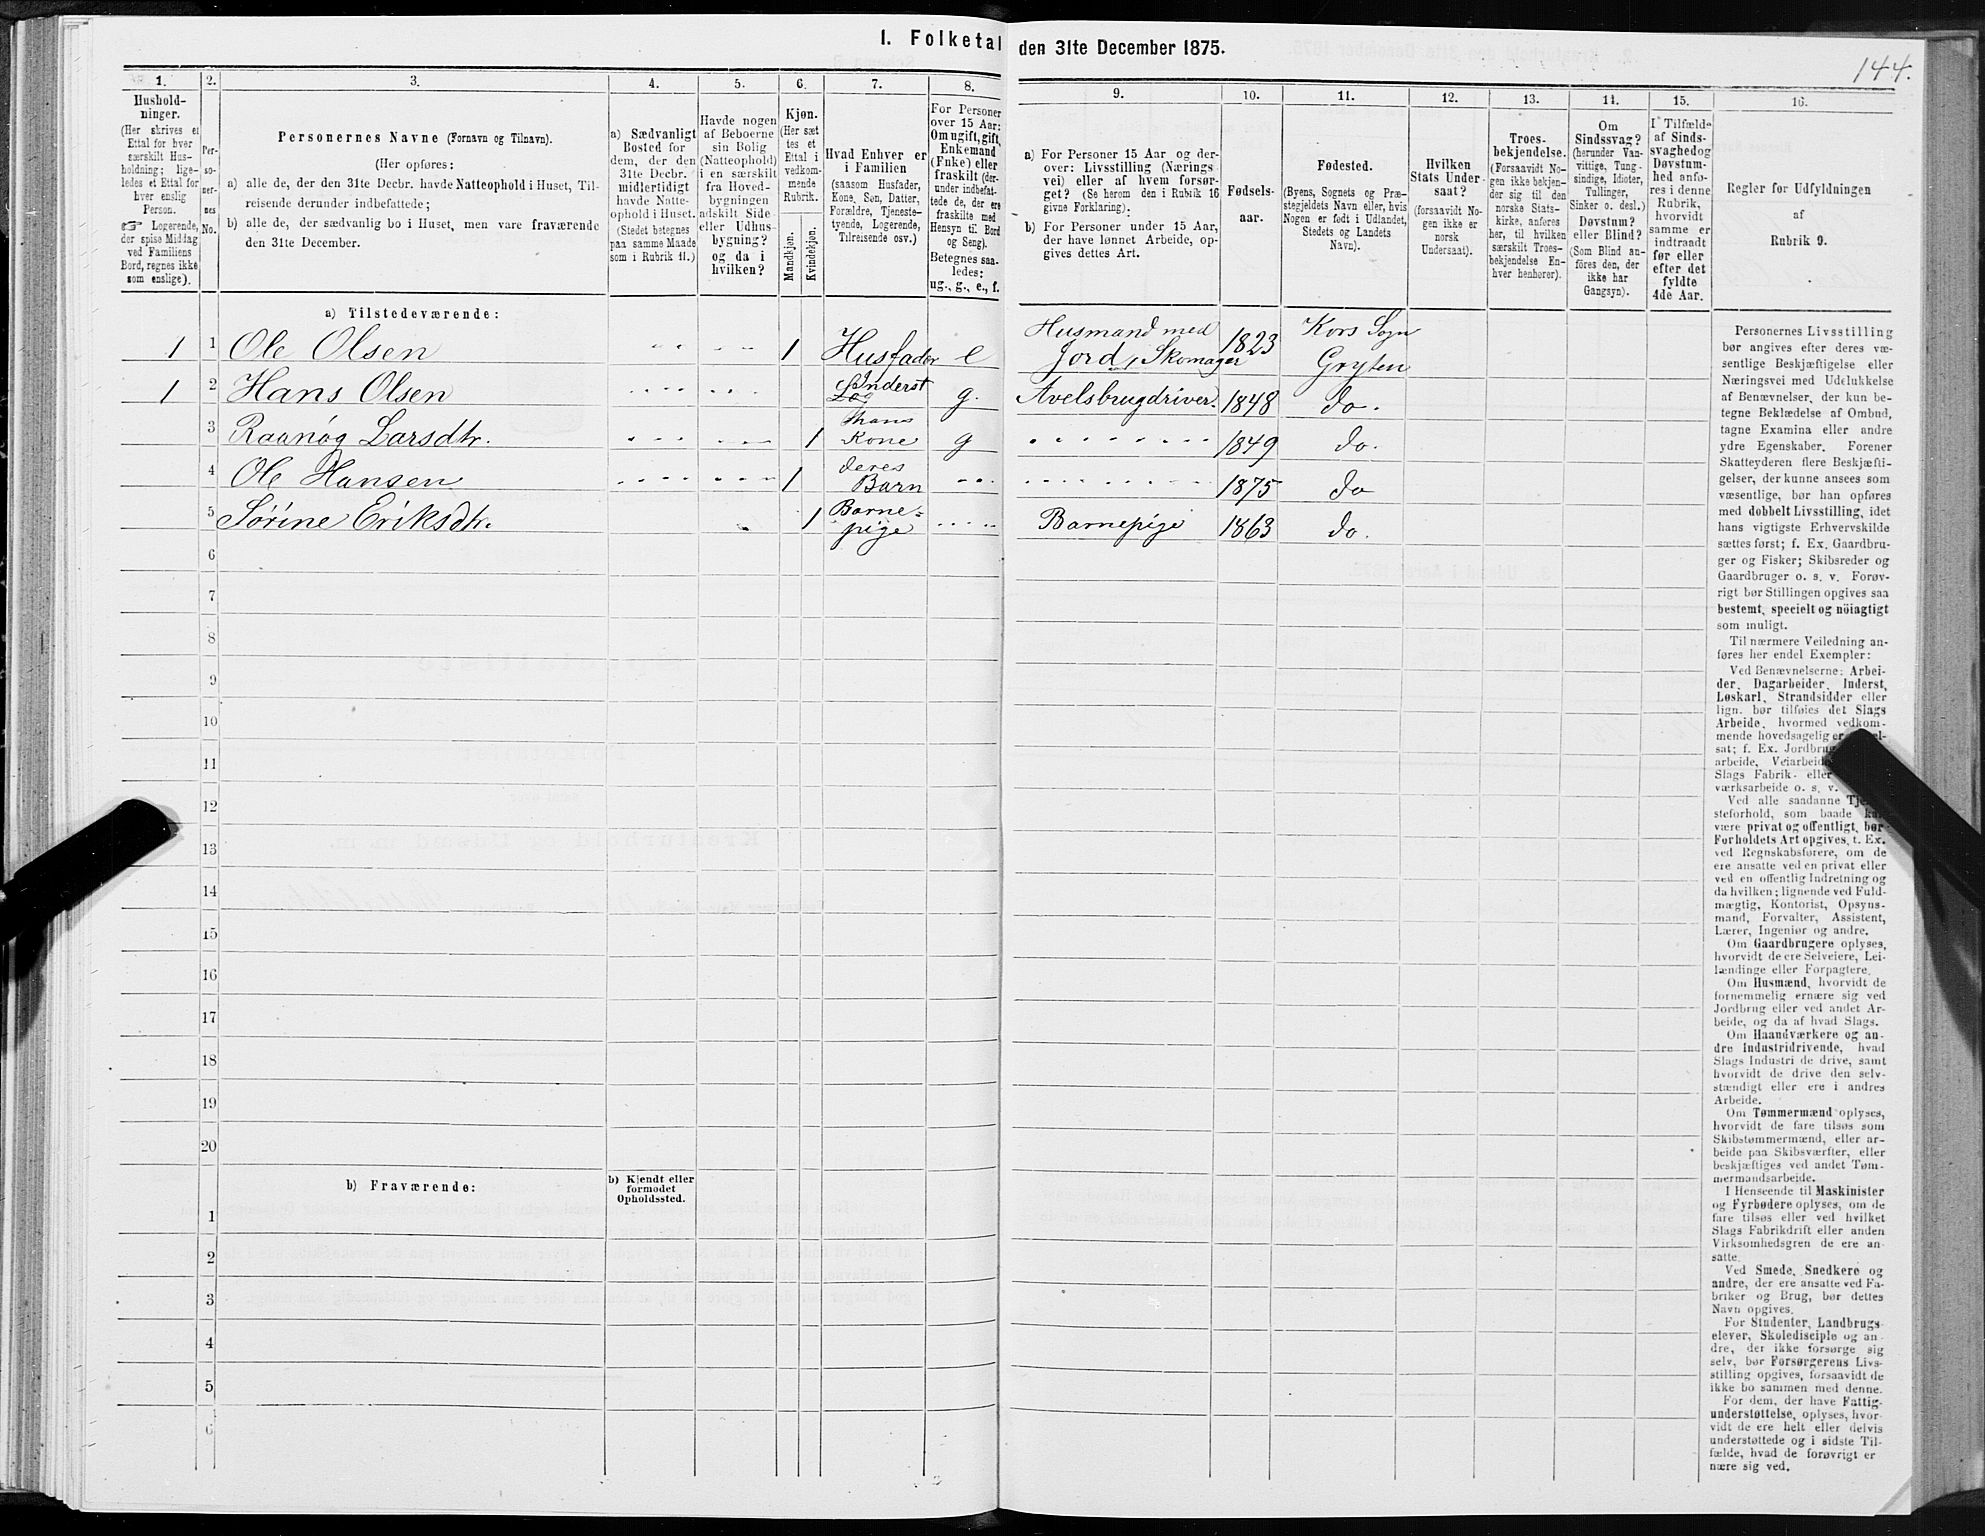 I. Folketal den 31te December 1875.
144.
1.
Hushold-
ninger.
(Her skrives et
Ettal for hver
særskilt Hus-
holdning; lige-
ledes et Ettal for
hver enslig
Person.
☞ Logerende,
der spise Middag
ved Familiens
Bord, regnes ikke
som enslige).
2.
Per-
so-
ner-
nes
No.
3.
Personernes Navne (Fornavn og Tilnavn).
(Her opføres:
a) alle de, der den 31te Decbr. havde Natteophold i Huset, Til-
reisende derunder indbefattede;
b) alle de, der sædvanlig bo i Huset, men vare fraværende
den 31te December.
4.
a) Sædvanligt
Bosted for
dem, der den
31te Decbr.
midlertidigt
havde Natte-
ophold i Huset.
(Stedet betegnes
paa samme Maade
som i Rubrik 11.)
5.
Havde nogen
af Beboerne
sin Bolig
(Natteophold)
i en særskilt
fra Hoved-
bygningen
adskilt Side-
eller Udhus-
bygning?
og da i
hvilken?
6.
Kjøn.
(Her sæt
tes et
Ettal i
vedkom-
mende
Rubrik.
Mandkjøn.
Kvindekjøn.
7.
Hvad Enhver er
i Familien
(saasom Husfader,
Kone, Søn, Datter,
Forældre, Tjeneste-
tyende, Logerende,
Tilreisende osv.)
8.
For Personer
over 15 Aar:
Om ugift, gift,
Enkemand
(Enke) eller
fraskilt (der-
under indbefat-
tede de, der ere
fraskilte med
Hensyn til Bord
og Seng).
Betegnes saa-
ledes:
ug., g., e., f.
9.
a) For Personer 15 Aar og der-
over: Livsstilling (Nærings-
vei) eller af hvem forsør-
get? (Se herom den i Rubrik 16
givne Forklaring).
b) For Personer under 15 Aar,
der have lønnet Arbeide, op-
gives dettes Art.
10.
Fødsels-
aar.
11.
Fødested.
(Byens, Sognets og Præ-
stegjeldets Navn eller, hvis
Nogen er født i Udlandet,
Stedets og Landets
Navn).
12.
Hvilken
Stats Under-
saat?
(forsaavidt No-
gen ikke er
norsk
Undersaat).
13.
Troes-
bekjendelse.
(Forsaavidt No-
gen ikke bekjen-
der sig til den
norske Stats-
kirke, anføres
her, til hvilken
særskilt Troes-
bekjendelse En-
hver henhører).
14.
Om
Sindssvag?
(herunder Van-
vittige, Tung-
sindige, Idioter,
Tullinger,
Sinker o. desl.)
Døvstum?
eller Blind?
(Som Blind an-
føres den, der
ikke har
Gangsyn).
15.
I Tilfælde
af Sinds-
svaghed og
Døvstum-
hed anfø-
res i denne
Rubrik,
hvorvidt
samme er
indtraadt
før eller
efter det
fyldte
4de Aar.
16.
Regler for Udfyldningen
af
Rubrik 9.
a) Tilstedeværende:
1 1 Ole Olsen 1 Husfader e Husmand med Jord, Skomager 1823 Kors Sogn Gryten
1 2 Hans Olsen Inderst g. Avelsbrugdriver. 1848 do.
3 Raanøg Larsdtr. 1 hans Kone g 1849 do.
4 Ole Hansen 1 deres Barn 1875 do
5 Sørine Eriksdtr. 1 Barne=pige Barnepige 1863 do.
6
7
8
9
10
11
12
13
14
15
16
17
18
19
20
b) Fraværende:
b) Kjendt eller
formodet
Opholdssted.
1
2
3
4
5
6
Personernes Livsstilling
bør angives efter deres væ-
sentlige Beskjæftigelse eller
Næringsvei med Udelukkelse
af Benævnelser, der kun be-
tegne Beklædelse af Ombud,
tagne Examina eller andre
ydre Egenskaber. Forener
Skatteyderen flere Beskjæfti-
gelser, der kunne ansees som
væsentlige, bør han opføres
med dobbelt Livsstilling, idet
hans vigtigste Erhvervskilde
sættes først; f. Ex. Gaardbru-
ger og Fisker; Skibsreder og
Gaardbruger o. s. v. Forøv-
rigt bør Stillingen opgives saa
bestemt, specielt og nöiagtigt
som muligt.
Til nærmere Veiledning an-
føres her endel Exempler:
Ved Benævnelserne: Arbei-
der, Dagarbeider, Inderst,
Løskarl, Strandsidder eller
lign. bør tilføies det Slags
Arbeide, hvormed vedkom-
mende hovedsagelig er
sat; f. Ex. Jordbrug
arbeide, Veiarbeide
Slags Fabrik- eller
værksarbeide o. s. v.
Ved alle saadanne
steforhold, som baade
være privat og offentligt, bør
Forholdets Art opgives, t. Ex.
ved Regnskabsførere, om de
ere ansatte ved en privat eller
ved en offentlig Indretning og
da hvilken; lignende ved Fuld-
mægtig, Kontorist, Opsyns-
mand, Forvalter, Assistent,
Lærer, Ingeniør og andre.
Om Gaardbrugere oplyses,
hvorvidt de ere Selveiere, Lei-
lændinge eller Forpagtere.
Om Husmænd, hvorvidt de
fornemmelig ernære sig ved
Jordbrug eller ved andet Ar-
beide, og da af hvad Slags.
Om Haandværkere og an-
dre Industridrivende, hvad
Slags Industri de drive, samt
hvorvidt de drive den selv-
stændigt eller ere i andres
Arbeide.
Om Tømmermænd oplyses,
hvorvidt de fare tilsøs som
Skibstømmermænd, eller ar-
beide paa Skibsværfter, eller
beskjæftiges ved andet Tøm-
mermandsarbeide.
I Henseende til Maskinister
og Fyrbødere oplyses, om de
fare tilsøs eller ved hvilket
Slags Fabrikdrift eller anden
Virksomhedsgren de ere an-
satte.
Ved Smede, Snedkere og
andre, der ere ansatte ved Fa-
briker og Brug, bør dettes
Navn opgives.
For Studenter, Landbrugs-
elever, Skoledisciple og an-
dre, der ikke forsørge sig
selv, bør Forsørgerens Livs-
stilling opgives, forsaavidt de
ikke bo sammen med denne.
For dem, der have Fattig-
understøttelse, oplyses, hvor-
vidt de ere helt eller delvis
understøttede og i sidste Til-
fælde, hvad de forøvrigt er-
nære sig ved.